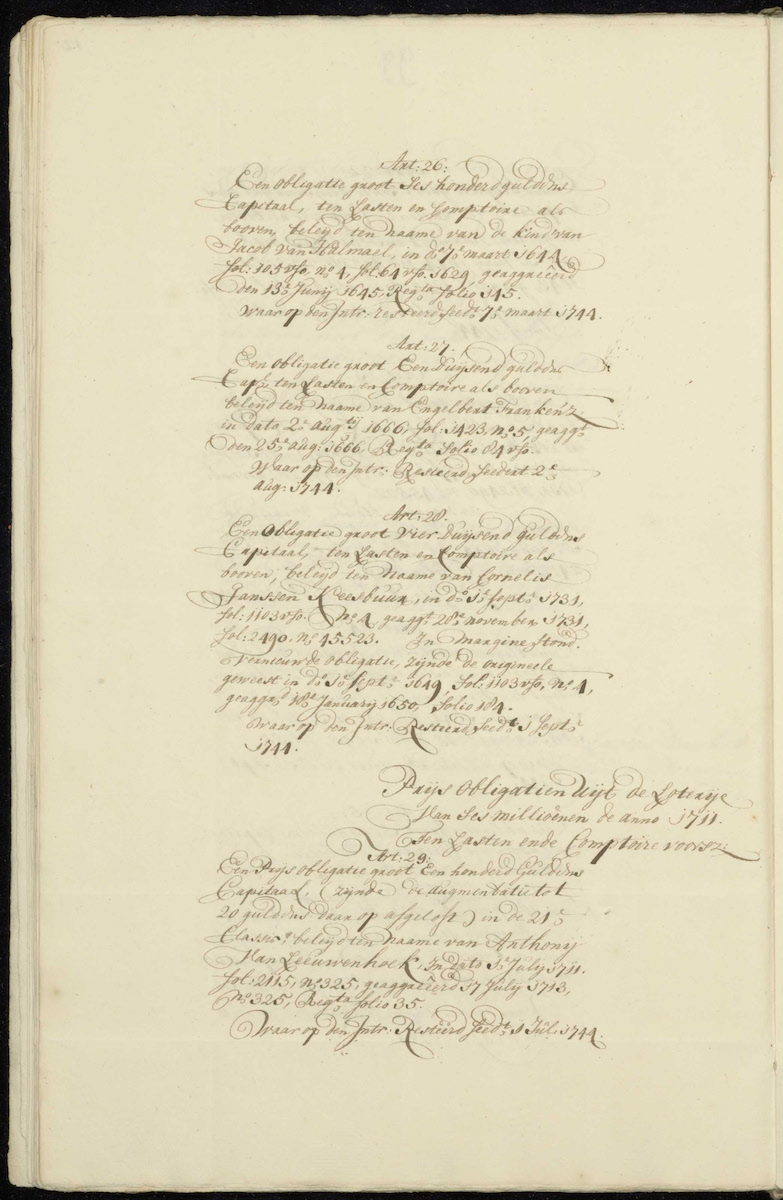 Art: 26:
Een obligatie groot Ses honderd guldens
Capitaal, ten Lasten en Comptoire als
booven, beleijd ten naame van de kind van
Jacob van Halmael, in do. 7e maart 1644
fol: 105 vso, no. 4, fol: 64 vso. 1629, geaggreëerd
den 13e Junij 1645, Regta folio 145.
Waar op den Intr: resteerd seedt 7e maart 1744.
Art: 27.
Een obligatie groot Een Duijsend guldens
Capl. ten Lasten en Comptoire als booven
beleijd ten Naame van Engelbert Frankensz
in dato 2e augtij 1666, fol: 1423, no. 5, geaggt
den 25e aug: 1666, Regta folio 84 vso.
Waar op den Intr: Resteerd seedert 2e
aug: 1744.
Art: 28.
Een Obligatie groot Vier Duijsend guldens
Capitaal, ten Lasten en Comptoire als
booven, beleijd ten Naame van Cornelis
Janssen Meesbuur, in do. 1e Septr. 1731,
fol: 1103 vso. No. 4, geaggt. 28e november 1731,
fol: 2490, No. 45523. In margine stond.
Vernieuwde obligatie, zijnde de origineele
geweest in do. 1e Septr. 1649, fol: 1103 vso, No. 4,
geaggrd. 18e January 1650, folio 184.
Waar op den Intr: Resteerd, seedt 1 Septr
1744.
Prijs Obligatien Uijt de Loterije
Van Ses millioenen de anno 1711.
Ten Lasten ende Comptoire voorsz:
Art: 29:
Een Prijs obligatie groot Een honderd Guldens
Capitaal, (zijnde de augmentatie tot
20 guldens daar op afgelost) in de 21e
Classis, beleijd ten naame van Anthonij
Van Leeuwenhoek, In dato 1e July 1711.
fol: 2115, No. 325, geaggreëerd 17 July 1713,
No. 325, Regta folio 35.
Waar op den Intr: Resteerd seedt. 1 Jul: 1744.